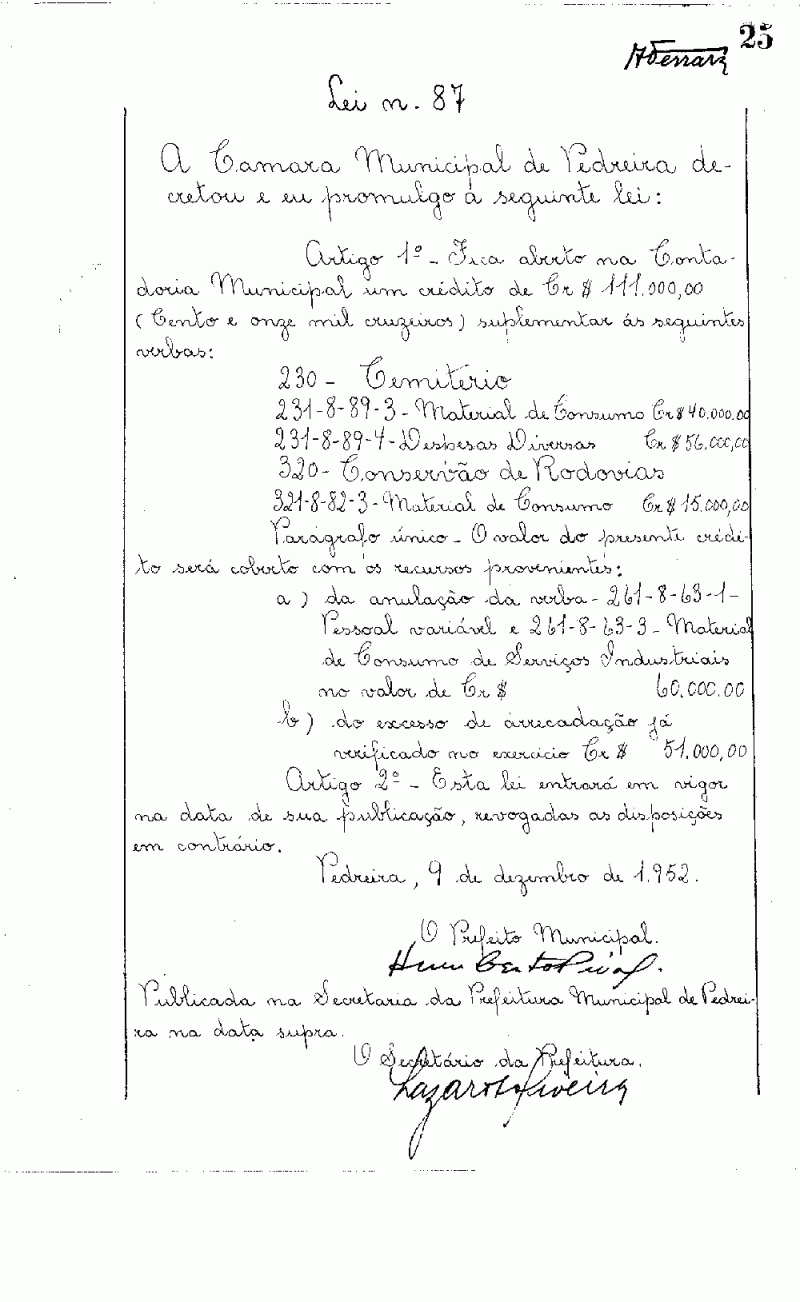 25
AFerraz
Lei n. 87
A Camara Municipal de Pedreira de-
cretou e eu promulgo a seguinte lei:
Artigo 1º - Fica aberto na Conta-
doria Municipal um crédito de Cr $ 111.000,00
(Cento e onze mil cruzeiros) suplementar ás seguintes
verbas:
230 - Cemitério
231-8-89-3 - Material de Consumo Cr $ 40.000.00
231-8-89-4 - Despesas Diversas Cr $ 56.000,00
320 - Conservão de Rodovias
321-8-82-3 - Material de Consumo Cr $ 15.000,00
Parágrafo único - O valor do presente crédi-
to será coberto com os recursos provenientes:
a) da anulação da verba - 261-8-63-1 -
Pessoal variável e 261-8-63-3 - Material
de Consumo de Serviços Industriais
no valor de Cr $ 60.000.00
b) do excesso de arrecadação já
verificado no exercício Cr $ 51.000,00
Artigo 2º - Esta lei entrará em vigor
na data de sua publicação, revogadas as disposições
em contrário.
Pedreira, 9 de dezembro de 1.952.
O Prefeito Municipal.
Humberto Piva
Publicada na Secretaria da Prefeitura Municipal de Pedrei-
ra na data supra.
O Secretário da Prefeitura.
Lazaro Oliveira